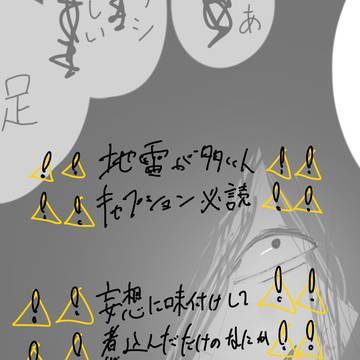 あ
シ
しい
足
地雷が多い人
キャプション必読
妄想に味付けして
煮込んだだけのなにか